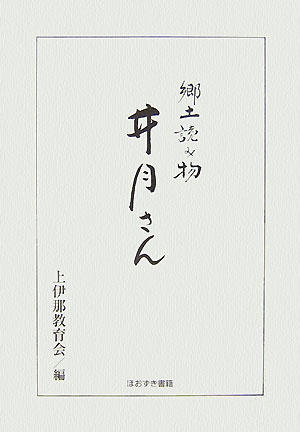 郷土読み物
井月さん
上伊那教育会/編
ほおずき書籍